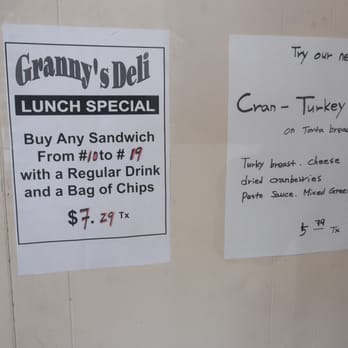 Granny's Deli
LUNCH SPECIAL
Buy Any Sandwich
From #10 to # 19
with a Regular Drink
and a Bag of Chips
$7.29 Tx
Try our ne
Cran - Turkey
on Torta brea
Turky breast. cheese
dried cranberries
Pesto Sauce. Mixed Gree
5.79 Tx